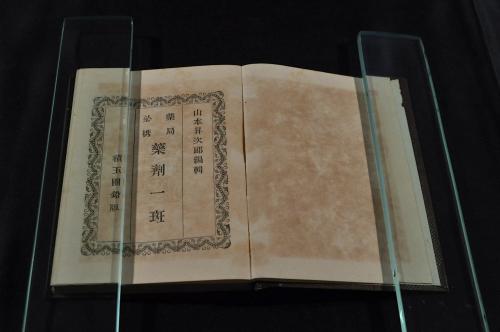 山本昇次郎編輯
藥局
必携
藥劑一斑
積玉圃鉛版